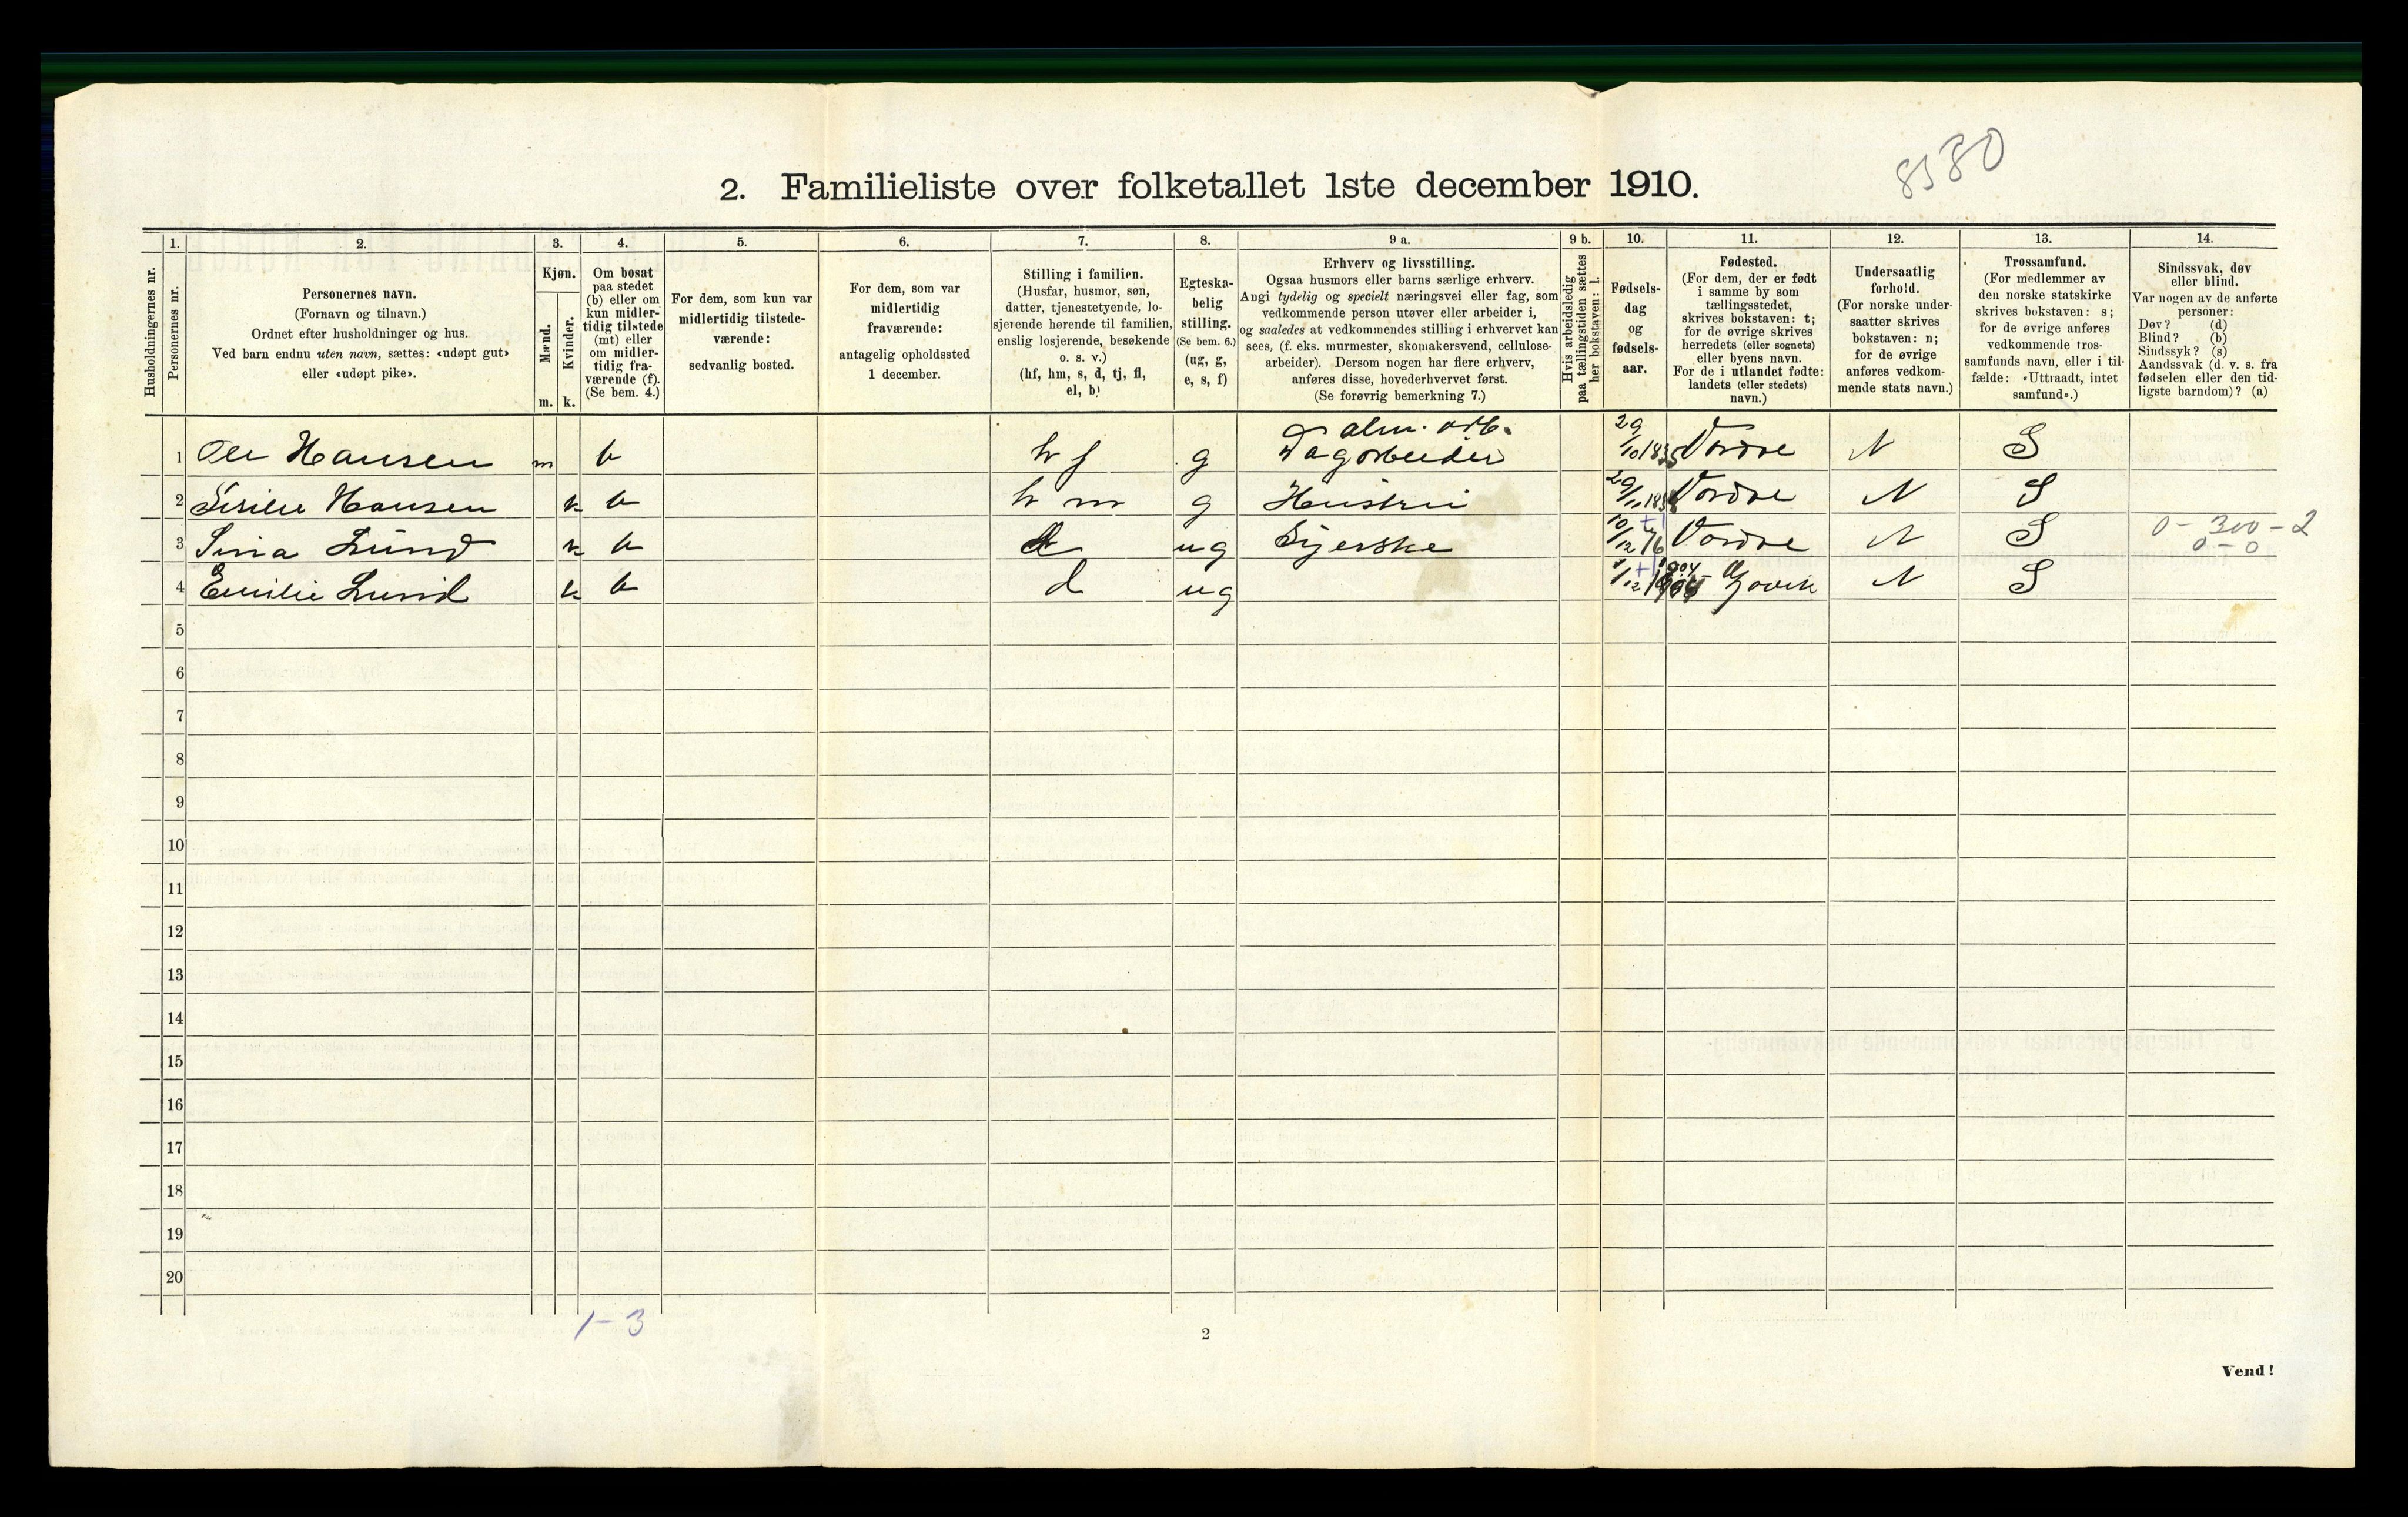 8580
2. Familieliste over folketallet 1ste december 1910.
1. 2. 3. 4. 5. 6. 7. 8. 9 a. 9 b. 10. 11. 12. 13. 14.
Husholdningernes nr.
Personernes nr.
Personernes navn.
(Fornavn og tilnavn.)
Ordnet efter husholdninger og hus.
Ved barn endnu uten navn, sættes: «udøpt gut»
eller «udøpt pike».
Kjøn.
Mænd.
Kvinder.
m. k.
Om bosat
paa stedet
(b) eller om
kun midler-
tidig tilstede
(mt) eller
om midler-
tidig fra-
værende (f).
(Se bem. 4.)
For dem, som kun var
midlertidig tilstede-
værende:
sedvanlig bosted.
For dem, som var
midlertidig
fraværende:
antagelig opholdssted
1 december.
Stilling i familien.
(Husfar, husmor, søn,
datter, tjenestetyende, lo-
sjerende hørende til familien,
enslig losjerende, besøkende
o. s. v.)
(hf, hm, s, d, tj, fl,
el, b)
Egteska-
belig
stilling.
(Se bem. 6.)
(ug, g,
e, s, f)
Erhverv og livsstilling.
Ogsaa husmors eller barns særlige erhverv.
Angi tydelig og specielt næringsvei eller fag, som
vedkommende person utøver eller arbeider i,
og saaledes at vedkommendes stilling i erhvervet kan
sees, (f. eks. murmester, skomakersvend, cellulose-
arbeider). Dersom nogen har flere erhverv,
anføres disse, hovederhvervet først.
(Se forøvrig bemerkning 7.)
Hvis arbeidsledig
paa tællingstiden sættes
her bokstaven: l.
Fødsels-
dag
og
fødsels-
aar.
Fødested.
(For dem, der er født
i samme by som
tællingsstedet,
skrives bokstaven: t;
for de øvrige skrives
herredets (eller sognets)
eller byens navn.
For de i utlandet fødte:
landets (eller stedets)
navn.)
Undersaatlig
forhold.
(For norske under-
saatter skrives
bokstaven: n;
for de øvrige
anføres vedkom-
mende stats navn.)
Trossamfund.
(For medlemmer av
den norske statskirke
skrives bokstaven: s;
for de øvrige anføres
vedkommende tros-
samfunds navn, eller i til-
fælde: «Uttraadt, intet
samfund».)
Sindssvak, døv
eller blind.
Var nogen av de anførte
personer:
Døv? (d)
Blind? (b)
Sindssyk? (s)
Aandssvak (d. v. s. fra
fødselen eller den tid-
ligste barndom)? (a)
alm. arb.
1 Ole Hansen m b hf g Dagarbeider 29/10 183 Vardre N S
2 Hansen k b hm g Hustru 29/11 18 Vardre N S
3 Sina Lund k b d ug Syerske 10/12 76 Vardre N S 0-300-2
0-0
4 Emilie Lund k b d ug 1/12 1904 Gjøvik N S
5
6
7
8
9
10
11
12
13
14
15
16
17
18
19
20
1-3
2
Vend!